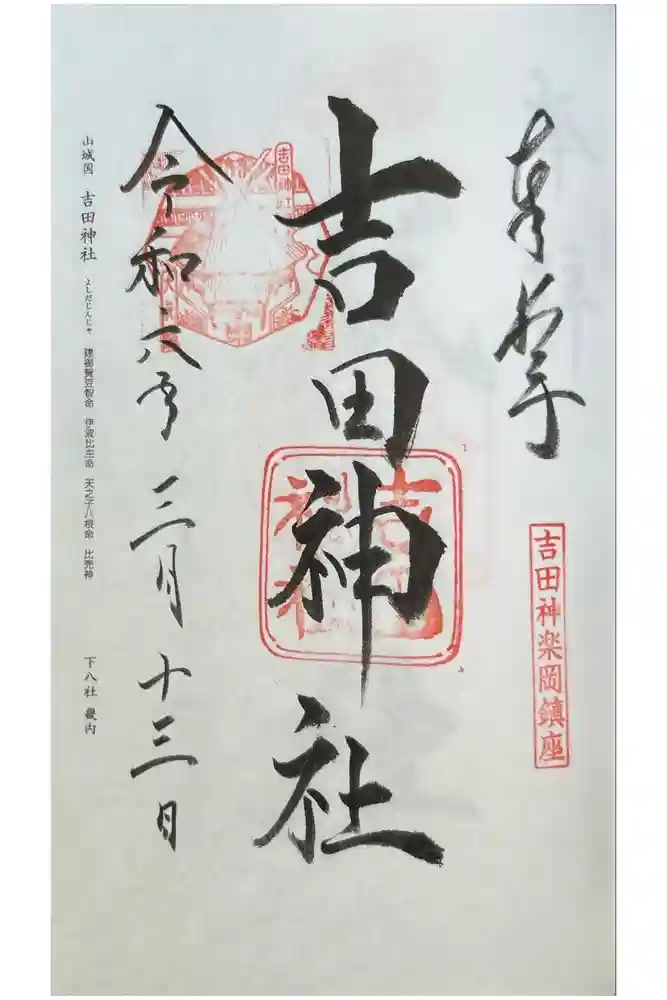 奉拝
吉田神楽岡鎮座
吉田神社
吉田
神社
吉田神社
令和六年三月十三日
山城国 吉田神社 よしだじんじゃ 建御賀豆智命 伊波比主命 天之子八根命 比売神 下八社 畿内